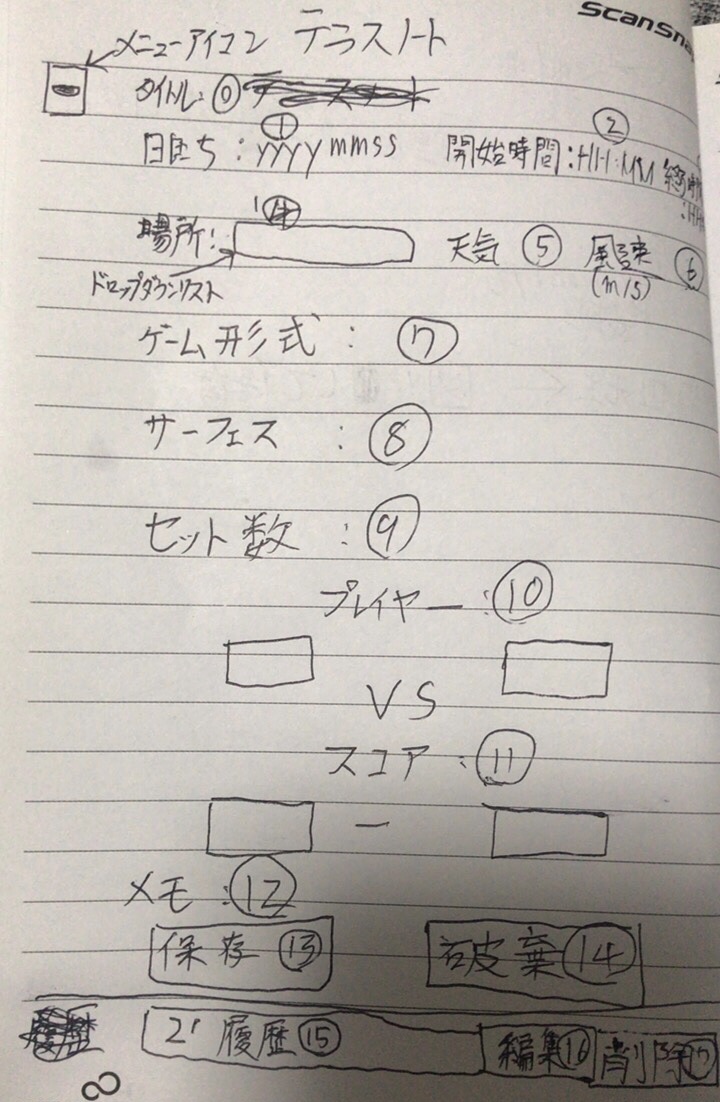 ScanSna
メニューアイコン テニスノート
タイトル: ⓪
日にち: ① yyyymmss 開始時間: ② HH:MM
場所: ④ 天気 ⑤ 風速 ⑥
ドロップダウンリスト (m/s)
ゲーム形式 : ⑦
サーフェス : ⑧
セット数 : ⑨
プレイヤー : ⑩
VS
スコア : ⑪
ー
メモ : ⑫
保存 ⑬ 破棄 ⑭
履歴 ⑮ 編集 ⑯ 削除 ⑰